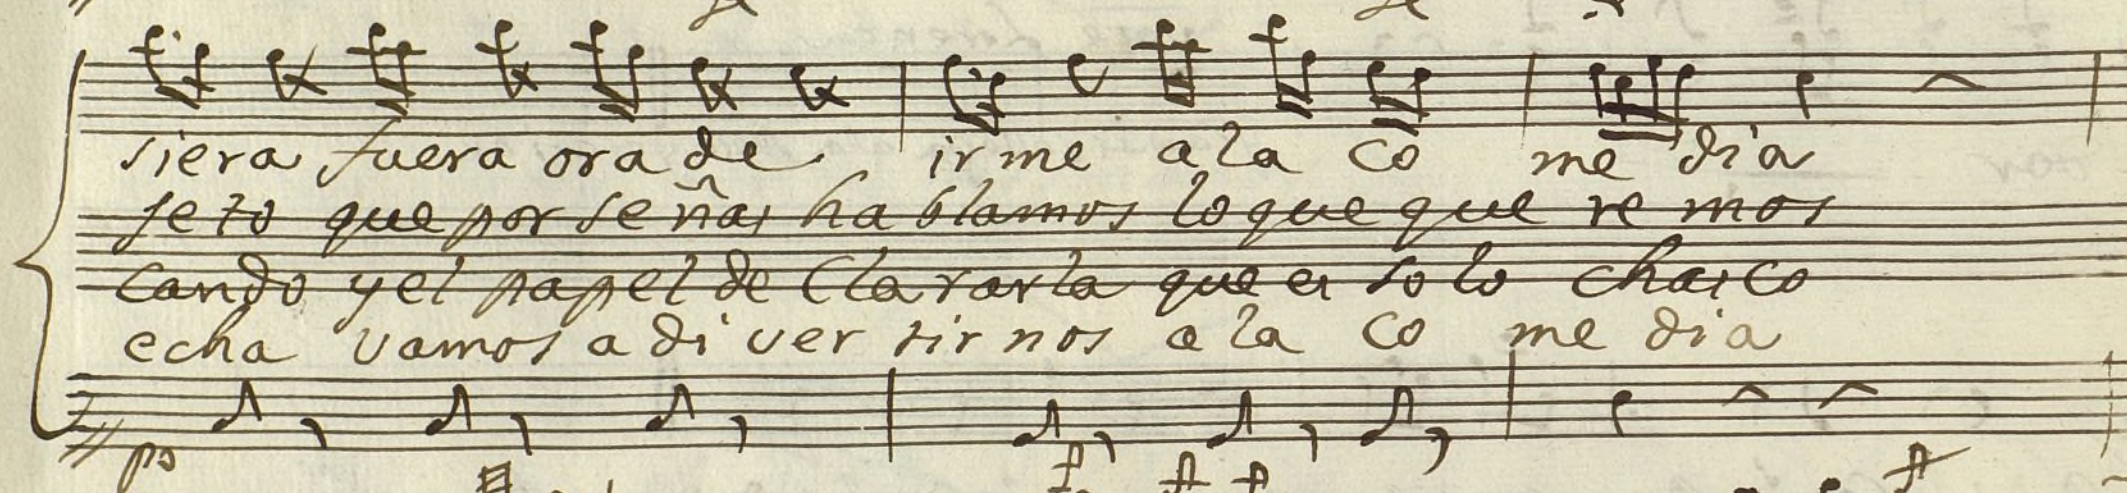 siera fuera ora de irme a la co me dia
jeto que por señas ha blamos lo que que re mos
cando y el papel de Cla rarla que es so lo chasco
echa vamos a di ver tir nos a la co me dia
po